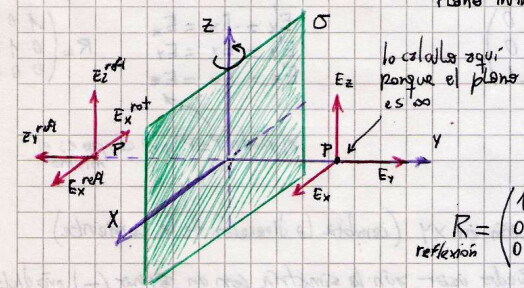 Z
σ
lo calculo aquí
porque el plano
es ∞
Ez refl
Ex rot
Ey refl
P
Ex refl
Ez
P
Y
Ey
Ex
X
R =
reflexión
1
0
0